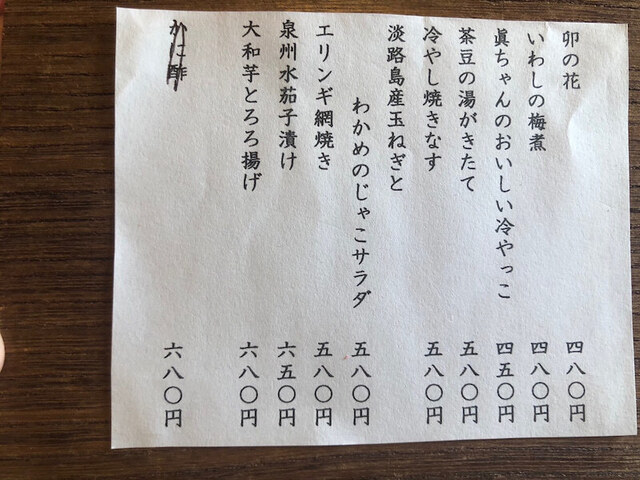 卯の花 四八〇円
いわしの梅煮 四八〇円
眞ちゃんのおいしい冷やっこ 四五〇円
茶豆の湯がきたて 五八〇円
冷やし焼きなす 五八〇円
淡路島産玉ねぎと
わかめのじゃこサラダ 五八〇円
エリンギ網焼き 五八〇円
泉州水茄子漬け 六五〇円
大和芋とろろ揚げ 六八〇円
かに酢 六八〇円